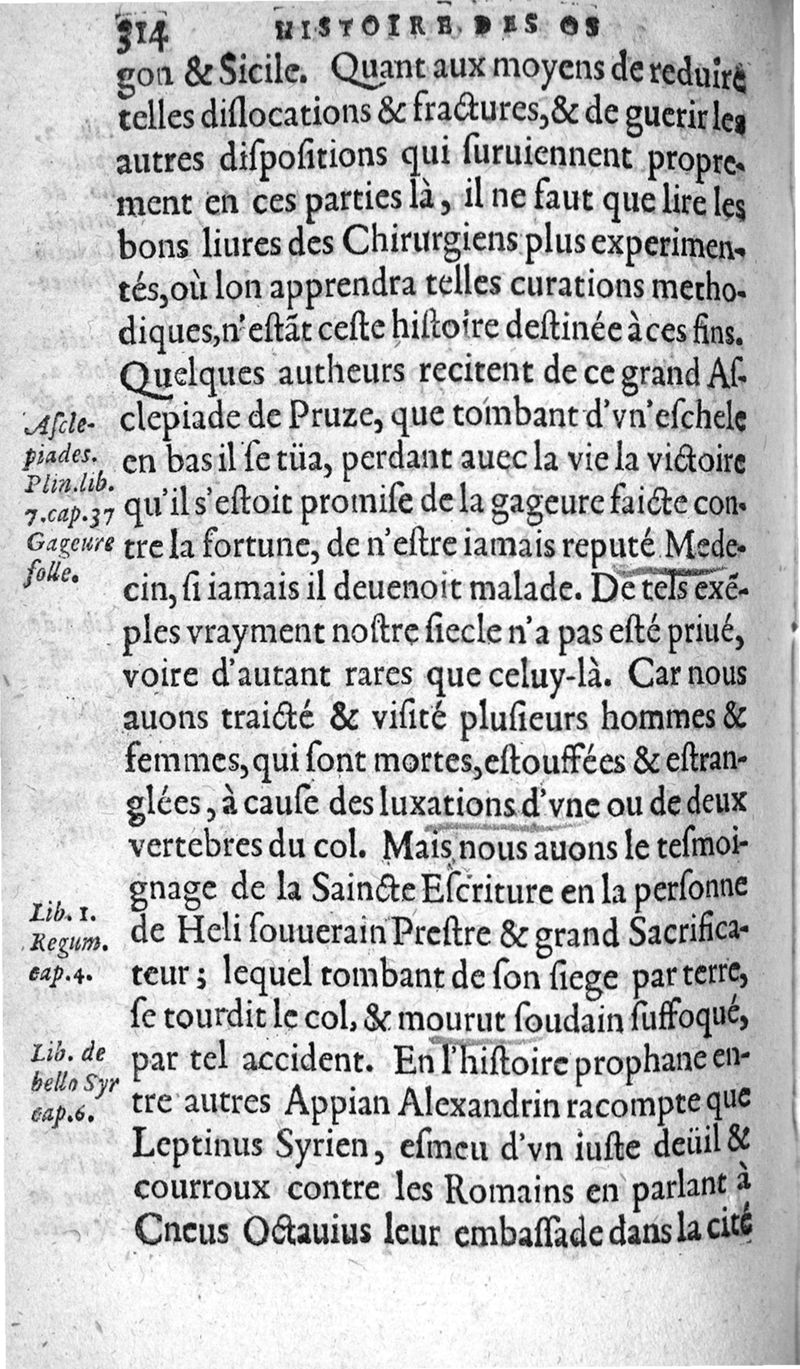 314 HISTOIRE DES OS
gon & Sicile. Quant aux moyens de reduire
telles diſlocations & fractures,& de guerir les
autres diſpoſitions qui ſuruiennent propre-
ment en ces parties là, il ne faut que lire les
bons liures des Chirurgiens plus experimen-
tés,où lon apprendra telles curations metho-
diques,n'eſtãt ceſte hiſtoire deſtinée à ces fins.
Quelques autheurs recitent de ce grand Aſ-
clepiade de Pruze, que tombant d'vn'eſchele
en bas il ſe tüa, perdant auec la vie la victoire
qu'il s'eſtoit promiſe de la gageure faicte con-
tre la fortune, de n'eſtre iamais reputé Mede-
cin, ſi iamais il deuenoit malade. De tels exẽ-
ples vrayment noſtre ſiecle n'a pas eſté priué,
voire d'autant rares que celuy-là. Car nous
auons traicté & viſité pluſieurs hommes &
femmes,qui ſont mortes,eſtouffées & eſtran-
glées, à cauſe des luxations d'vne ou de deux
vertebres du col. Mais nous auons le teſmoi-
gnage de la Saincte Eſcriture en la perſonne
de Heli ſouuerain Preſtre & grand Sacrifica-
teur; lequel tombant de ſon ſiege par terre,
ſe tourdit le col, & mourut ſoudain ſuffoqué,
par tel accident. En l'hiſtoire prophane en-
tre autres Appian Alexandrin racompte que
Leptinus Syrien, eſmeu d'vn iuſte deüil &
courroux contre les Romains en parlant à
Cneus Octauius leur embaſſade dans la cité
Aſcle-
piades.
Plin.lib.
7.cap.37
Gageure
folle.
Lib. 1.
Regum.
cap.4.
Lib. de
bello Syr
cap.6.